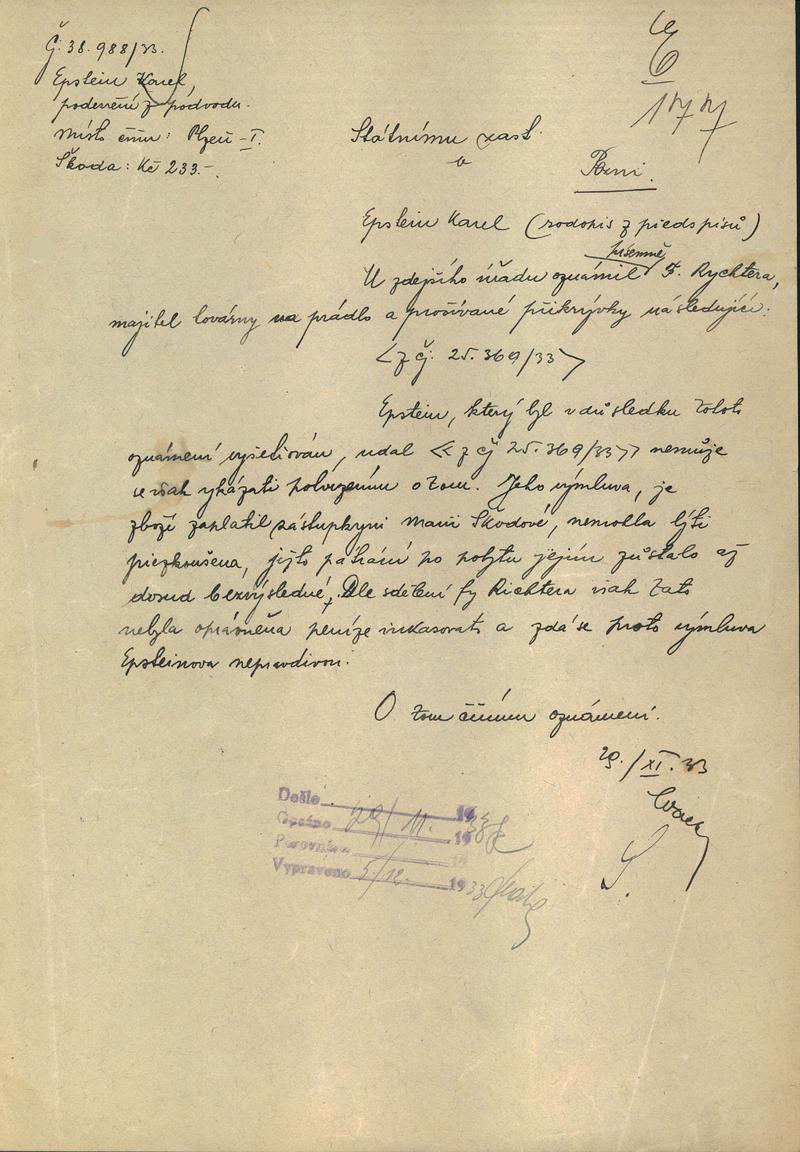 Č. 38.988/33.
Epstein Karel,
podezření z podvodu.
Místo činu: Plzeň-I.
Škoda: Kč 233.-
E
1777
Státnímu zast.
v
Epstein Karel (rodopis z předpisů)
písemně
U zdejšího úřadu oznámil F. Rychtera,
majitel továrny na prádlo a prošívané přikrývky následující:
<z čj. 25.369/33>
Epstein, který byl v důsledku tohoto
oznámení vyšetřován, udal <z čj 25.369/33> nemůže
se však vykázati potvrzením o tom. Jeho výmluva, že
zboží zaplatil zástupkyni Marii Škodové, nemohla býti
přezkoušena, ježto pátrání po pobytu jejím zůstalo až
dosud bezvýsledné. Dle sdělení fy Richtera však tato
nebyla oprávněna peníze inkasovati a zdá se proto výmluva
Epsteinova nepravdivou.
O tom činím oznámení.
29./XI. 33
Došlo 19
29/11. 1933
Porovnáno 19
Vypraveno 5/12. 1933